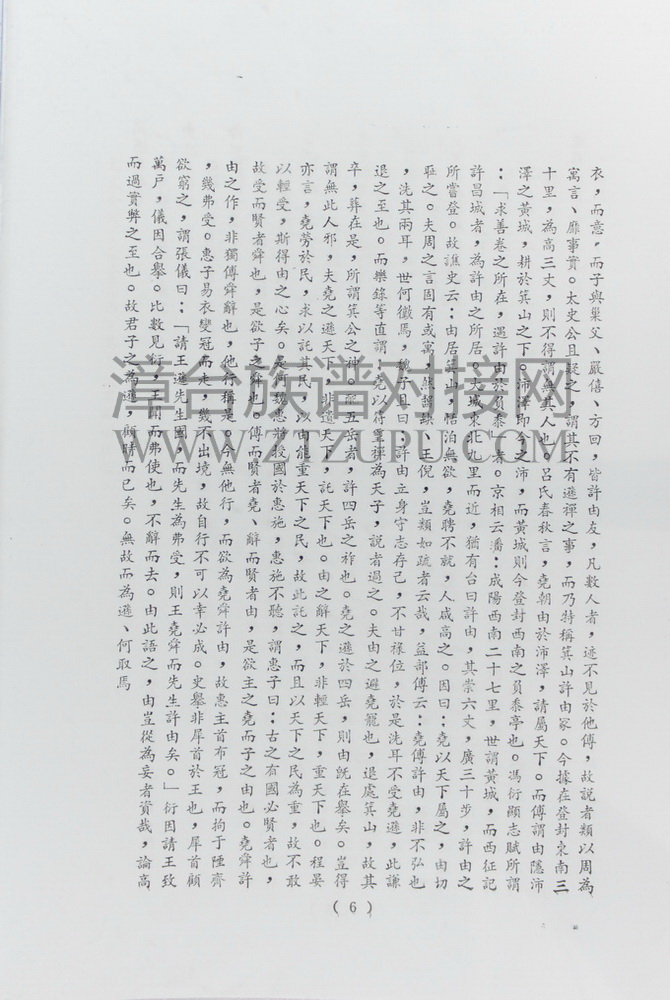 衣，而意，而子與巢父、嚴僖、方回，皆許由友，凡數人者，迹不見於他傳，故説者類以周為
寓言、靡事實。太史公且疑之，謂其不有遜禪之事，而乃特稱箕山許由冢。今據在登封東南三
十里，為高三丈，則不得謂無其人也。呂氏春秋言，堯朝由於沛澤，請屬天下。而傳謂由隱沛
澤之黃城，耕於箕山之下。沛澤即今之沛，而黃城則今登封西南之負黍亭也。馮衍顯志賦所謂
：「求善卷之所在，遇許由於負黍」者。京相云潘：成陽西南二十七里，世謂黃城，而西征記
許昌城者，為許由之所居。大城東北九里而近，猶有台曰許由，其崇六丈，廣三十步，許由之
所嘗登。故譙史云：由居箕山，恬泊無欲，堯聘不就，人咸高之。因曰：堯以天下屬之，由切
耻之。夫周之言固有或寓，然齧缺、王倪，豈類如疏者云哉，益部傳云：堯傳許由，非不弘也
，洗其兩耳，世何徵焉，魏子且曰：許由立身守志存己，不甘祿位，於是洗耳不受堯遜，此謙
退之至也。而樂錄等直謂，堯以得堂禪為天子，說者過之。夫由之避堯寵也，退處箕山，故其
卒，葬在是，所謂箕公之神。配五岳者，許四岳之祚也。堯之遜於四岳，則由既在舉矣。豈得
謂無此人邪，夫堯之遜天下，非遣天下，託天下也。由之辭天下，非輕天下，重天下也。程晏
亦言，堯勞於民，求以託其民，以由能重天下之民，故此託之，而且以天下之民為重，故不敢
以輕受，斯得由之心矣。是衍魏惠將授國於惠施，惠施不聽，謂惠子曰：古之有國必賢者也，
故受而賢者舜也，是欲子之舜也。傳而賢者堯、辭而賢者由，是欲主之堯而子之由也。堯舜許
由之作，非獨傳舜辭也，他行稱是。今無他行，而欲為堯舜許由，故惠主首布冠，而拘于陲齊
，幾弗受。惠子易衣變冠而走，幾不出境，故自行不可以幸必成。史舉非犀首於王也，犀首顧
欲窮之，謂張儀曰：「請王遜先生國，而先生為弗受，則王堯舜而先生許由矣。」衍因請王致
萬戶，儀因合舉。比數見衍，王聞而弗使也，不辭而去。由此語之，由豈從為妄者資哉，論高
而過實弊之至也。故君子之為遜，顧時而已矣。無故而為遜、何取焉
（6）
漳台族谱对接网
WWW.ZTZUPU.COM